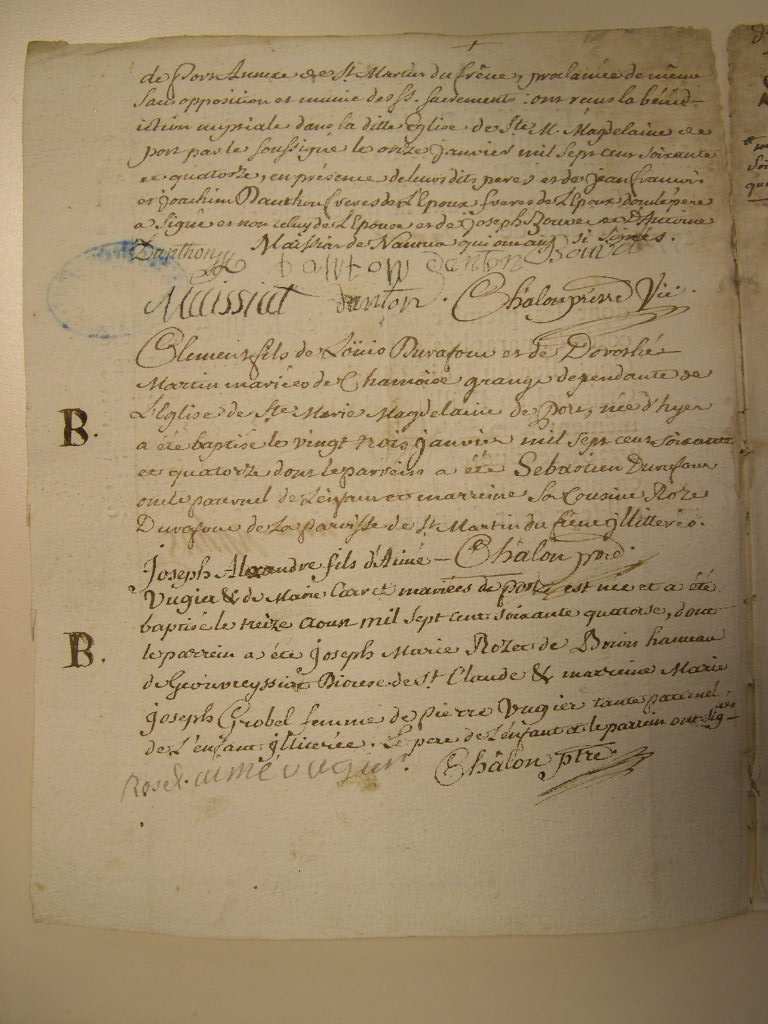 de Port Annexe de St. Martin du frêne, proclamée de même
sans opposition et munie des St. sacrements: ont recus la béné-
diction nuptiale dans la ditte Eglise de Ste M. Magdelaine de
port par le soussigné le onze janvier mil sept cent soixante
et quatorze, en présence de leurs dits pères et de jean francois
et joachim Danthon freres de L'Epoux dont le père
a signé et non celuy de L'Epouse et de joseph et d'Antoine
Maissiat de Nantua qui ont aussi signés.
Danthon danton danton
Maissiat danton. Châlon prêtre Vic.
Clement fils de Loüis Durafour et de Dorothé
Martin mariées de Chamoise grange dependante de
L'Eglise de Ste Marie Magdelaine de Port, née d'hyer
B. a été baptisé le vingt trois janvier mil sept cent soixante
et quatorze dont le parrein a été Sebastien Durafour
oncle paternel de L'enfant et marreine sa Cousine Roze
Durafour de La parroisse de St. Martin du frêne jllitterés.
Châlon prê.
Joseph Alexandre fils d'Aimé
Vugier & de Marie mariées de port est née et a été
baptisé le treize aoust mil sept cent soixante quatorse, dont
B. le parrein a été joseph Marie Rozet de Brion hameau
de Geovreyssiat Diocese de St. Claude & marreine Marie
joseph Grobel femme de pierre Vugier tante paternel
de L'enfant jlliterée. Le pere de L'enfant et le parrein ont signés
Roset. aimé vugier. Châlon ptre.